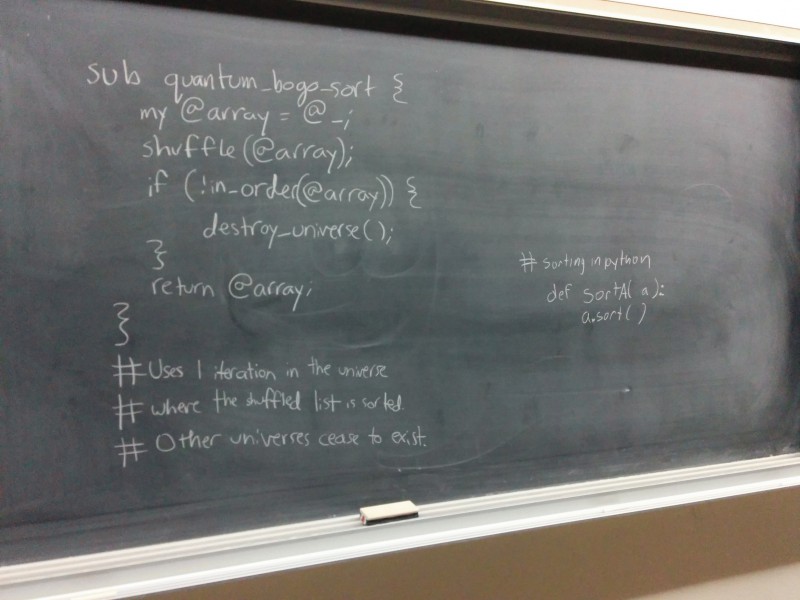 sub quantum_bogo_sort {
my @array = @_;
shuffle(@array);
if (!in_order(@array)) {
destroy_universe();
}
return @array;
}
# Uses 1 iteration in the universe
# where the shuffled list is sorted.
# Other universes cease to exist.
# sorting in python
def sortA( a):
a.sort( )